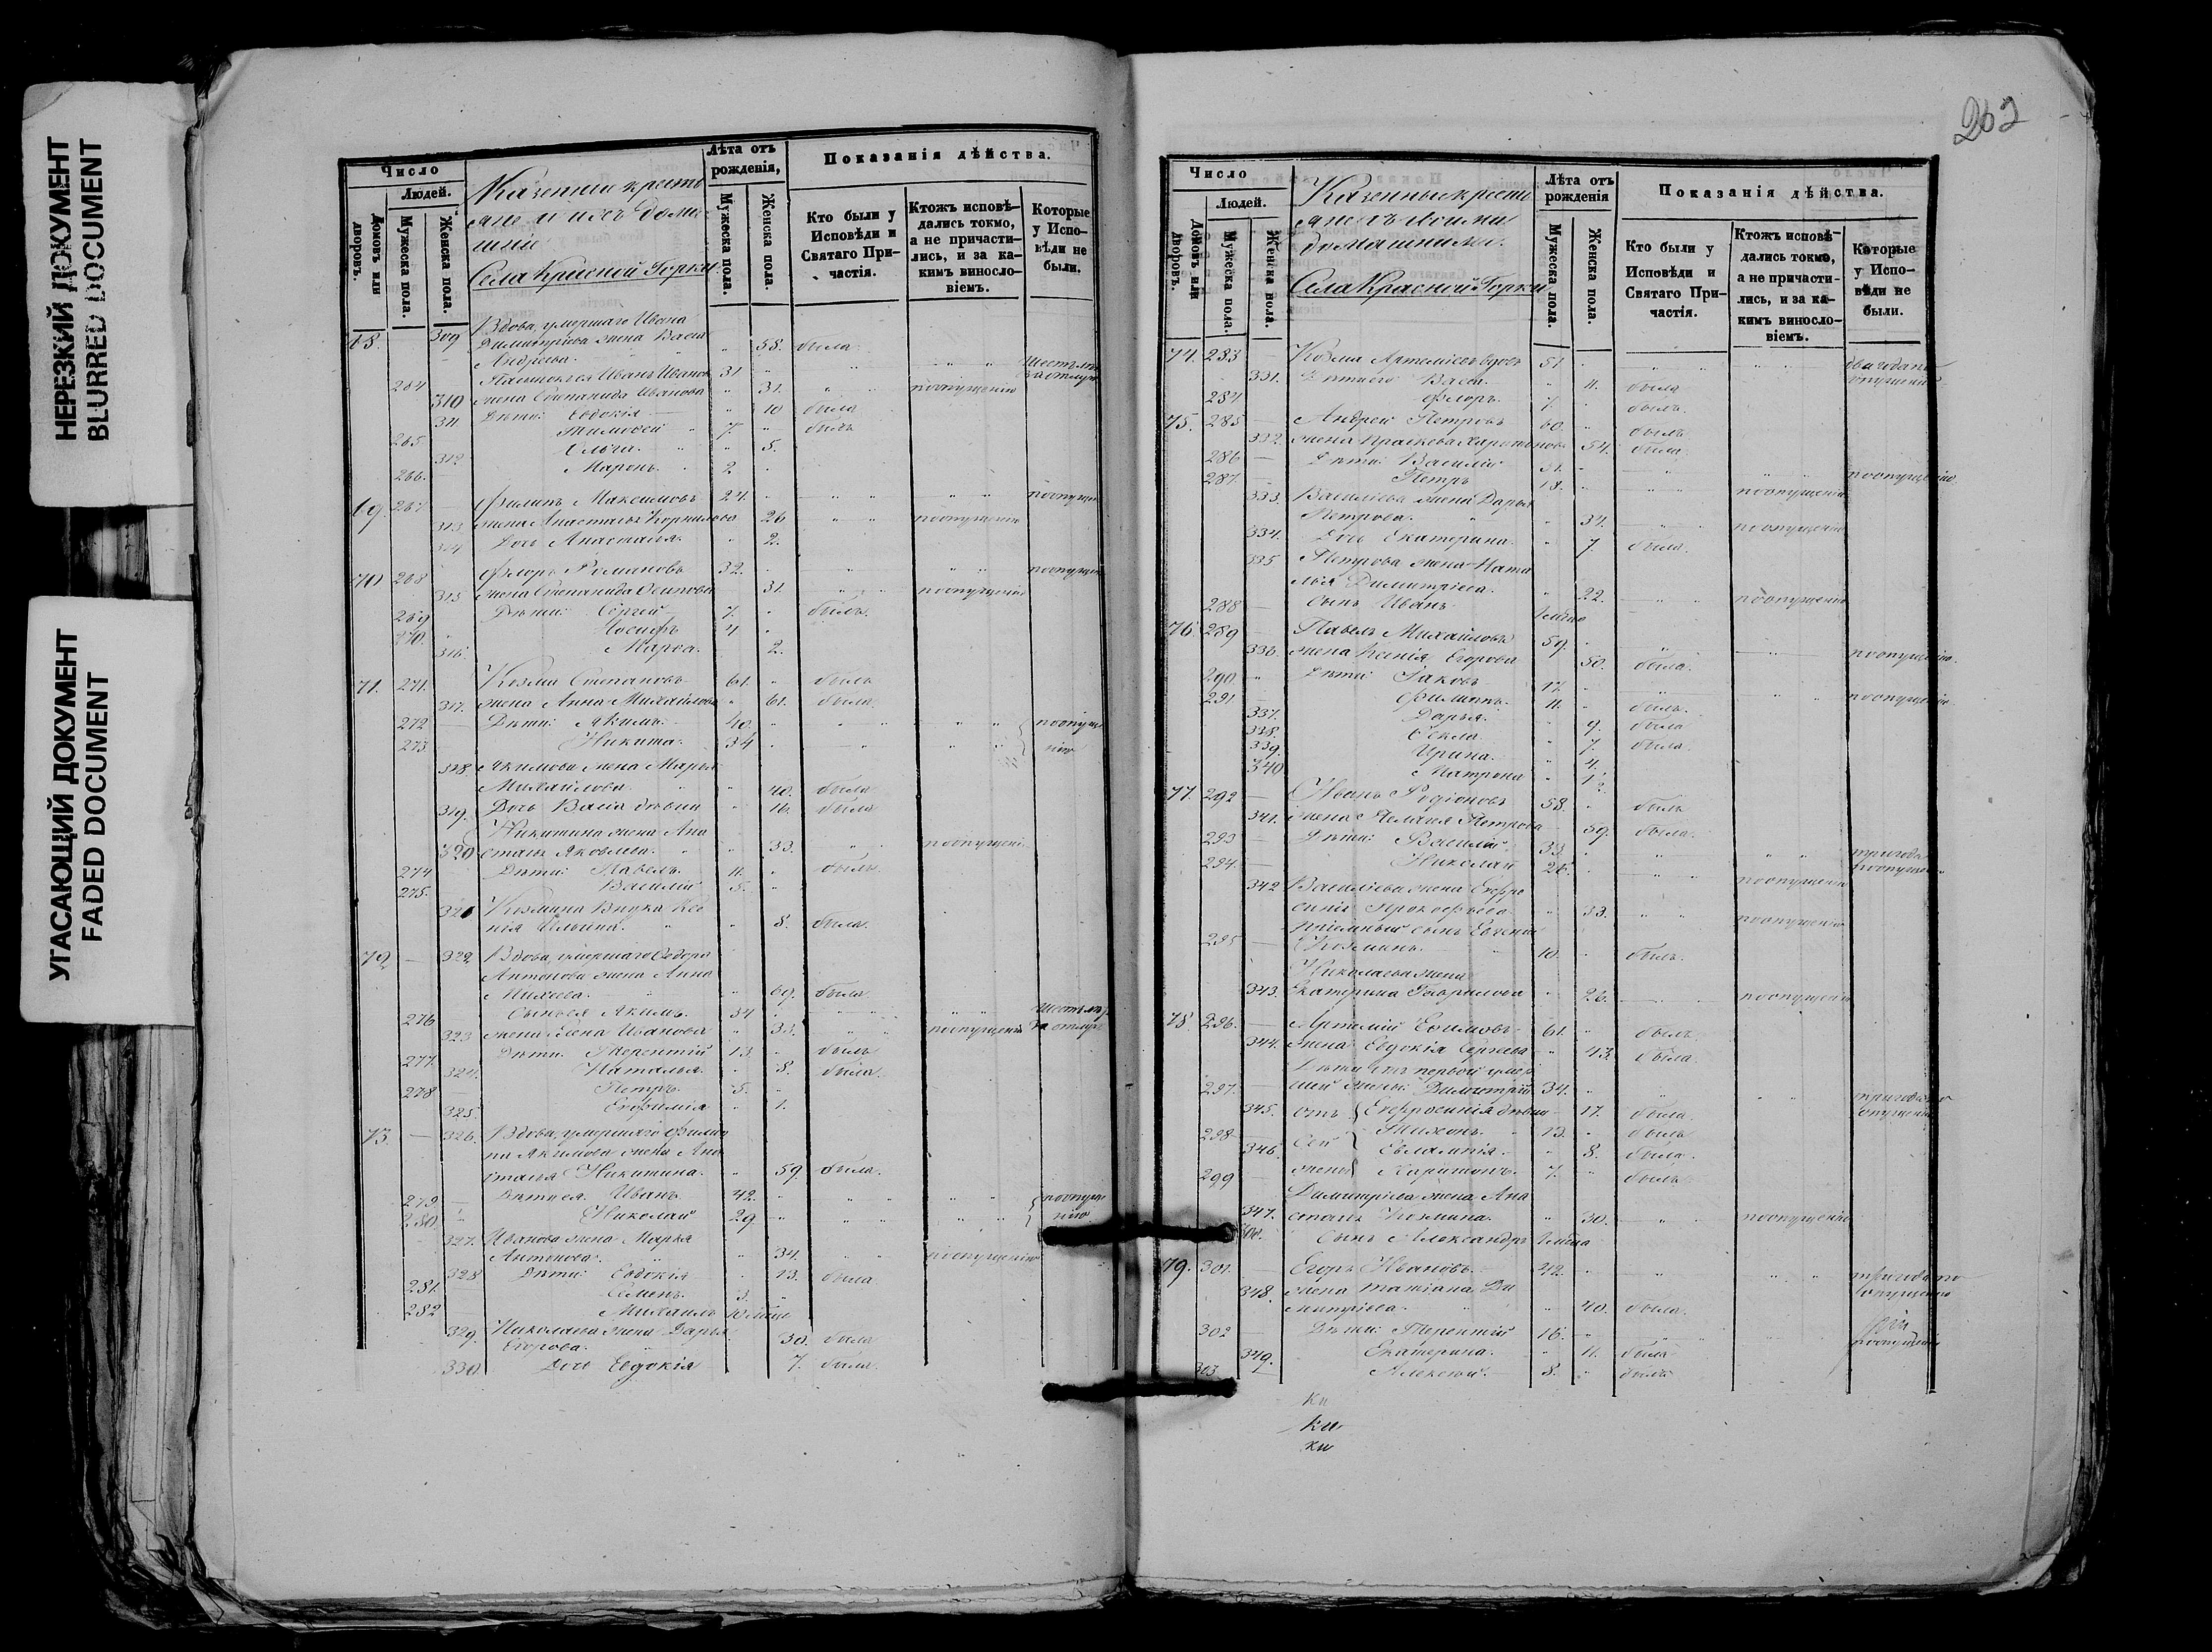 НЕРЕЗКИЙ ДОКУМЕНТ
BLURRED DOCUMENT
УГАСАЮЩИЙ ДОКУМЕНТ
FADED DOCUMENT
Число
Людей.
Домовъ или дворовъ.
Мужеска пола.
Женска пола.
Села Красной Горки.
Лѣта отъ рожденія,
Мужеска пола.
Женска пола.
Показанія дѣйства.
Кто были у Исповѣди и Святаго Причастія.
Ктожъ исповѣдались токмо, а не причастились, и за какимъ винословіемъ.
Которые у Исповѣди не были.
68. 309 Вдова, умершаго Ивана
Димитріева жена Васи
Андреева. 58. была
264 Иванъ Ивановъ 31
310 жена Степанида Иванова 31. по опущенію
311 Дѣти: Евдокія 10 была
265 Тимофей 7. былъ
312 Ольга. 5.
266. Миронъ. 2
69. 267 Филипъ Максимовъ 24.
313 жена Анастасія Корнилова 26 по опущенію
314 Дочь Анастасія 2.
70 268 Флоръ Романовъ 32.
315 жена Степанида Осипова 31. по опущенію
269 Дѣти: Сергей 7. былъ.
270. Іосифъ 4
316. Марѳа. 2.
71. 271. Козма Степановъ 61. былъ
317. жена Анна Михайлова 61. была
272 Дѣти: Якимъ. 40.
273. Никита. 34
318. Якимова жена Марья
Михайлова 40. была
319. Дочь Васса дѣвица 16. была
Никитина жена Ана
320 стасія Яковлева. 33. по опущенію
274 Дѣти: Павелъ 11. былъ
275. Василій 5.
321 Козмина внука Ксе
нія Ильина. 8. была.
72 322 Вдова, умершаго Ѳедора
Антонова жена Анна
Михеева. 69. была
276 Сынъ ея Якимъ. 34
323 жена Елена Иванова 33. по опущенію
277. Дѣти. Терентій 13. былъ
324. Наталья. 8. была.
278 Петръ. 5.
325. Евфимія 1.
73. 326. Вдова, умершаго Филип
па Якимова жена Ана
стасія Никитина. 59. была.
279. Дѣти ея. Иванъ. 42.
280. Николай 29
327. Иванова жена Марья
Антонова. 34. по опущенію
328 Дѣти: Евдокія 13. была
281. Семенъ. 3.
282 Михаилъ 10 мѣс
329. Николаева жена Дарья
Егорова. 30. была
330. Дочь Евдокія 7. была.
262
Число
Людей.
Домовъ или дворовъ.
Мужеска пола.
Женска пола.
Казенные кресть
яне съ ихъ
домашними.
Села Красной Горки
Лѣта отъ рожденія
Мужеска пола.
Женска пола.
Показанія дѣйства.
Кто были у Исповѣди и Святаго Причастія.
Ктожъ исповѣдались токмо, а не причастились, и за какимъ винословіемъ.
Которые у Исповѣди не были.
74. 283 Козма Артемьевъ вдовъ 51
331. Дѣти его Васса. 11. была
284 Флоръ. 7. былъ.
75. 285 Андрей Петровъ 60. былъ
332. жена Прасковья Харитонова 54. была
286 Дѣти: Василій 31. по опущенію
287. Петръ 18. по опущенію
333. Васильева жена Дарья
Петрова. 34. по опущенію
334. Дочь Екатерина. 7. была.
335 Петрова жена Ната
лья Димитріева. 22. по опущенію
288 Сынъ Иванъ
76. 289 Павелъ Михайловъ 59. по опущенію.
336. жена Ксенія Егорова 50. была.
290. Дѣти: Іаковъ 17. по опущенію
291 Филиппъ. 11. былъ.
337. Дарья. 9. была
338. Ѳекла. 7. была.
339. Ирина. 4.
340 Матрона
77. 292 Иванъ Родіоновъ 58. былъ
341. жена Пелагія Петрова 59. была.
293 Дѣти: Василій 33.
294. Николай 26. по опущенію
342 Васильева жена Евфро
синія Прокофьева 33. по опущенію
пріемный сынъ Евгеній
295 Козминъ. 10. былъ.
Николаева жена
343. Екатерина Гаврилова 26. по опущенію
78. 296. Артемій Ефимовъ 61. былъ.
344. жена Евдокія Сергеева 43. была.
Дѣти отъ первой умер
297. шей жены: Димитрій 34.
345. отъ Евфросинія дѣвица 17. была.
298 Сей Тихонъ. 13. былъ
346. Евлампія. 8. была.
299 жены Харитонъ. 7. былъ
Димитріева жена Ана
347. стасія Козмина. 30. по опущенію
Сынъ Александръ
79. 301. Егоръ Ивановъ. 42.
348. жена Татіана Ди
митріева. 40. была.
302 Дѣти: Терентій 16.
349. Екатерина. 11. была
303 Алексѣй. 8. былъ
ки
ки
ки